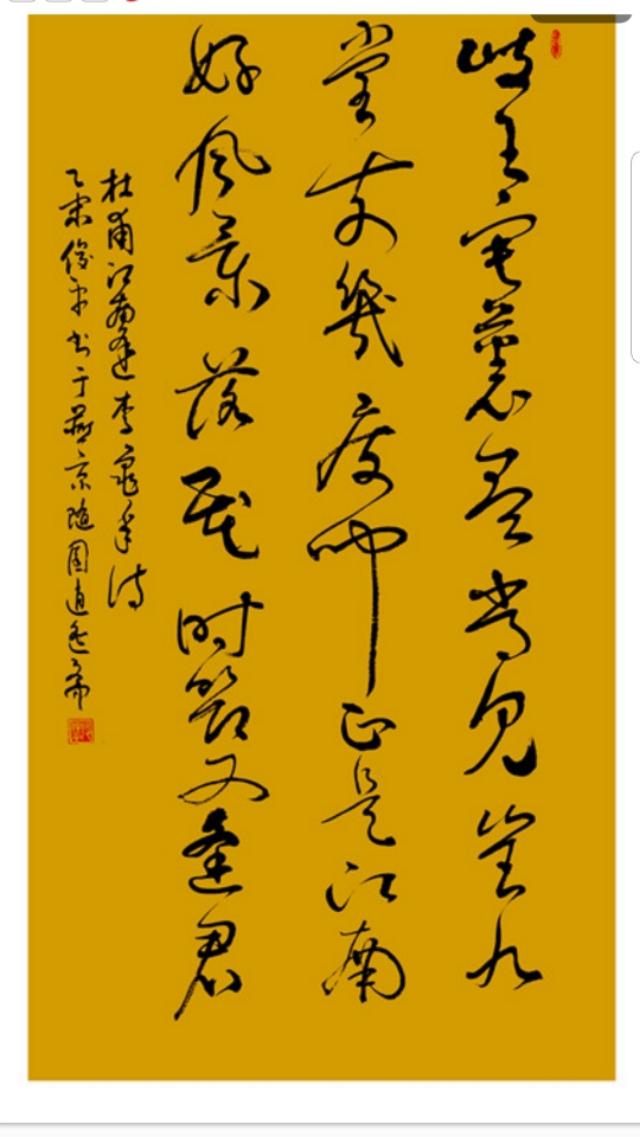 岐王宅裏尋常见崔九
堂前幾度闻正是江南
好风景落花时节又逢君
杜甫江南逢李龟年诗
乙未俊平书于燕京随园逍遥斋